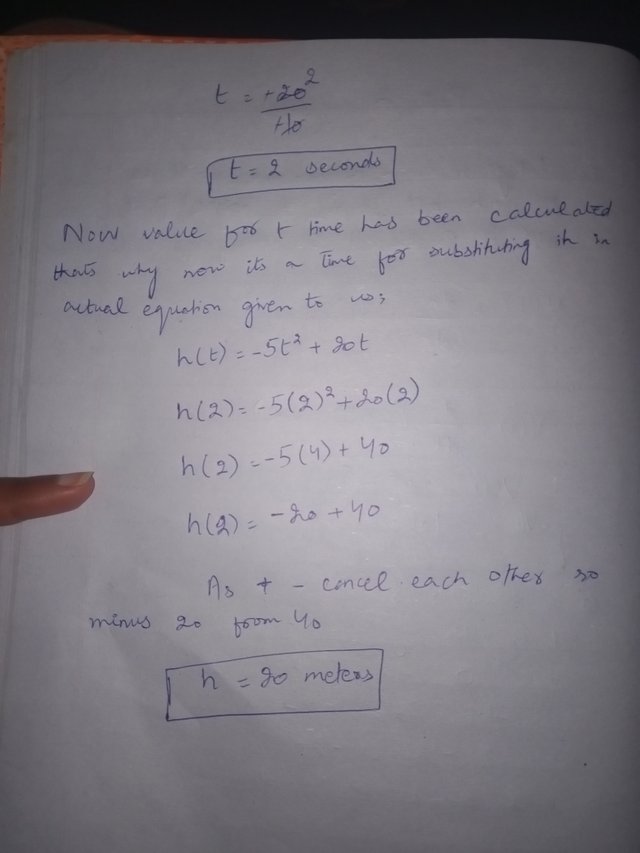 t = +20 2
+10
t = 2 seconds
Now value for t time has been calculated
thats why now its a time for substituting it in
actual equation given to us;
h(t) = -5t² + 20t
h(2) = -5(2)² + 20(2)
h(2) = -5(4) + 40
h(2) = -20 + 40
As + - cancel each other so
minus 20 from 40
h = 20 meters